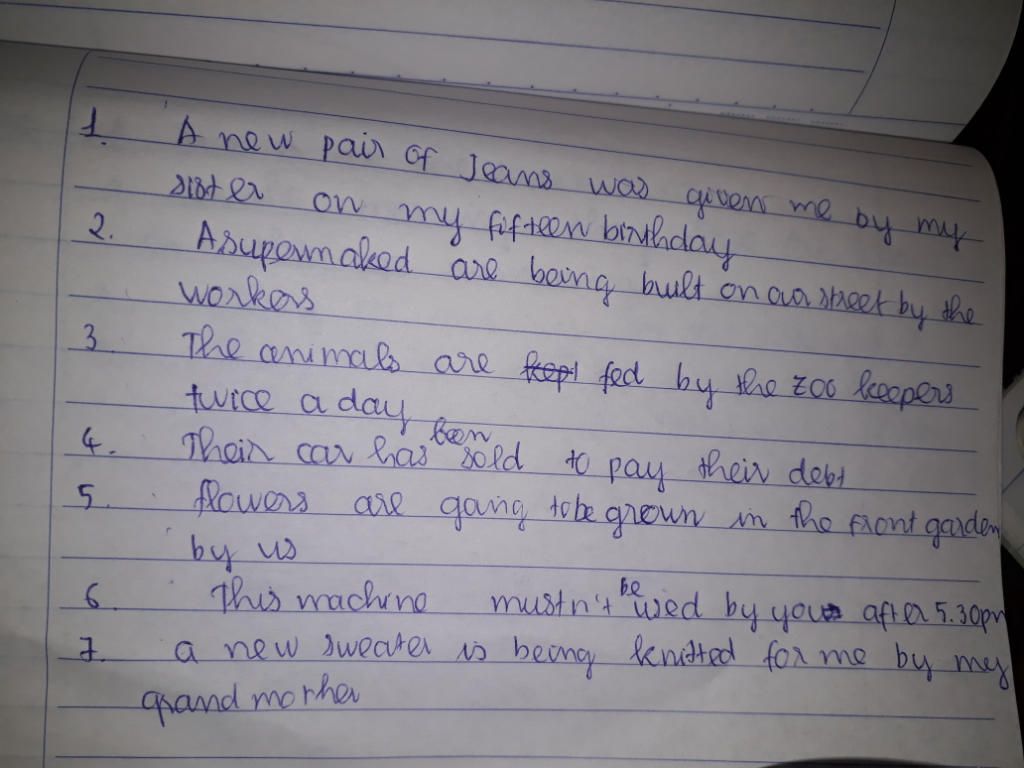 1. A new pair of Jeans was given me by my
sister on my fifteen birthday
2. A supermaked are being built on our street by the
workers
3 The animals are kept fed by the zoo keepers
twice a day
4. Their car has been sold to pay their debt
5. flowers are going to be grown in the front garden
by us
6. This machine mustn't be used by you after 5.30pm
7. a new sweater is being knitted for me by my
grand mother